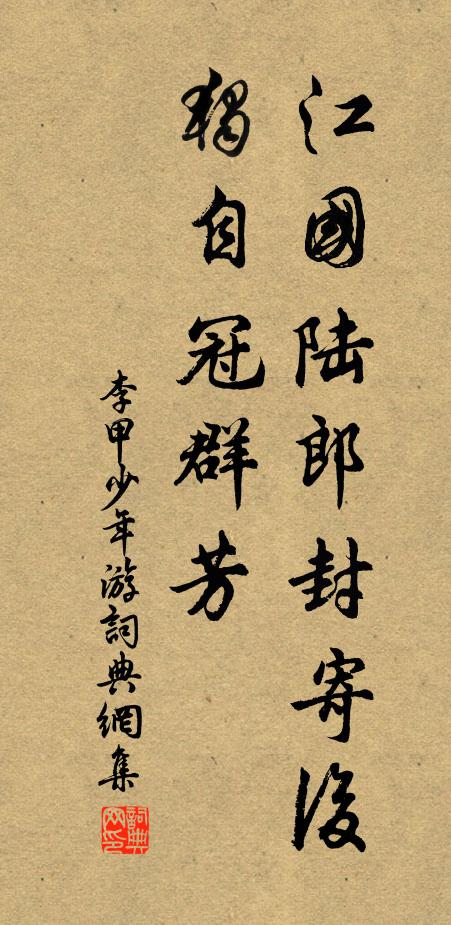 江國陆郎封寄後
獨自冠群芳
李甲少年游詞典網集
詞典网印